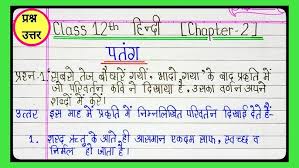 प्रश्न
उत्तर
Class 12th हिन्दी [Chapter-2]
पतंग
प्रश्न-1. 'सबसे तेज़ बौछारें गयीं, भादो गया' के बाद प्रकृति में
जो परिवर्तन कवि ने दिखाया है, उसका वर्णन अपने
शब्दों में करें।
उत्तर इस माह में प्रकृति में निम्नलिखित परिवर्तन दिखाई देते हैं-
1. शरद ऋतु के आते ही आसमान एकदम साफ, स्वच्छ व
निर्मल हो जाता है।